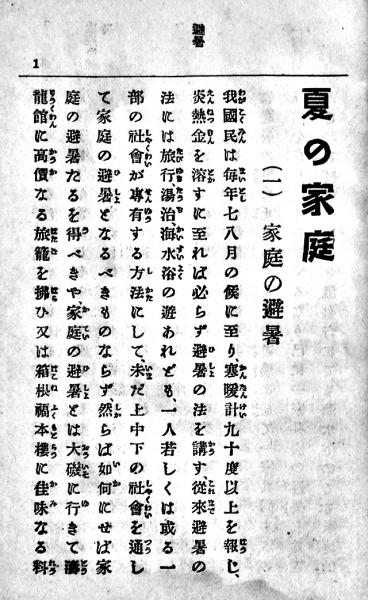 避暑
1
夏の家庭
(一) 家庭の避暑
我國民は毎年七八月の候に至り、寒暖計九十度以上を報じ、
炎熱金を溶すに至れば必らず避暑の法を講す、從來避暑の
法には旅行湯治、海水浴の遊あれども、一人若しくは或る一
部の社會が專有する方法にして、未だ上中下の社會を通し
て家庭の避暑となるべきものならず然らば如何にせば家
庭の避暑たるを得べきや、家庭の避暑とは大磯に行きて濤
龍館に高價なる旅籠を拂ひ又は箱根福本樓に佳味なる料